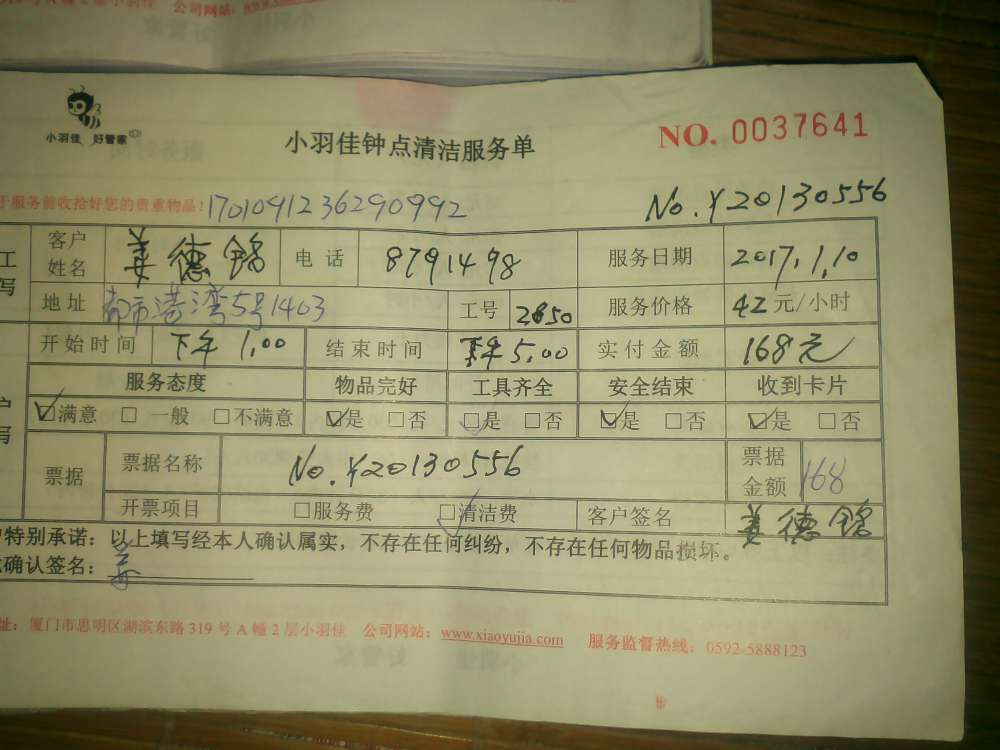 公司网站：
小羽佳 好管家
小羽佳钟点清洁服务单
NO. 0037641
于服务前收拾好您的贵重物品！170109123629 0992
No.Y20130556
工 客户姓名 姜德铭 电话 8791498 服务日期 2017.1.10
写 地址 都市港湾5号1403 工号 2850 服务价格 42元/小时
开始时间 下午 1.00 结束时间 下午 5.00 实付金额 168元
服务态度 物品完好 工具齐全 安全结束 收到卡片
户 ☑满意 □一般 □不满意 ☑是 □否 ☑是 □否 ☑是 □否 ☑是 □否
写 票据 票据名称 No.Y20130556 票据金额 168
开票项目 □服务费 ☑清洁费 客户签名 姜德铭
户特别承诺：以上填写经本人确认属实，不存在任何纠纷，不存在任何物品损坏。
确认签名：姜
址：厦门市思明区湖滨东路319号A幢2层小羽佳 公司网站：www.xiaoyujia.com 服务监督热线：0592-5888123